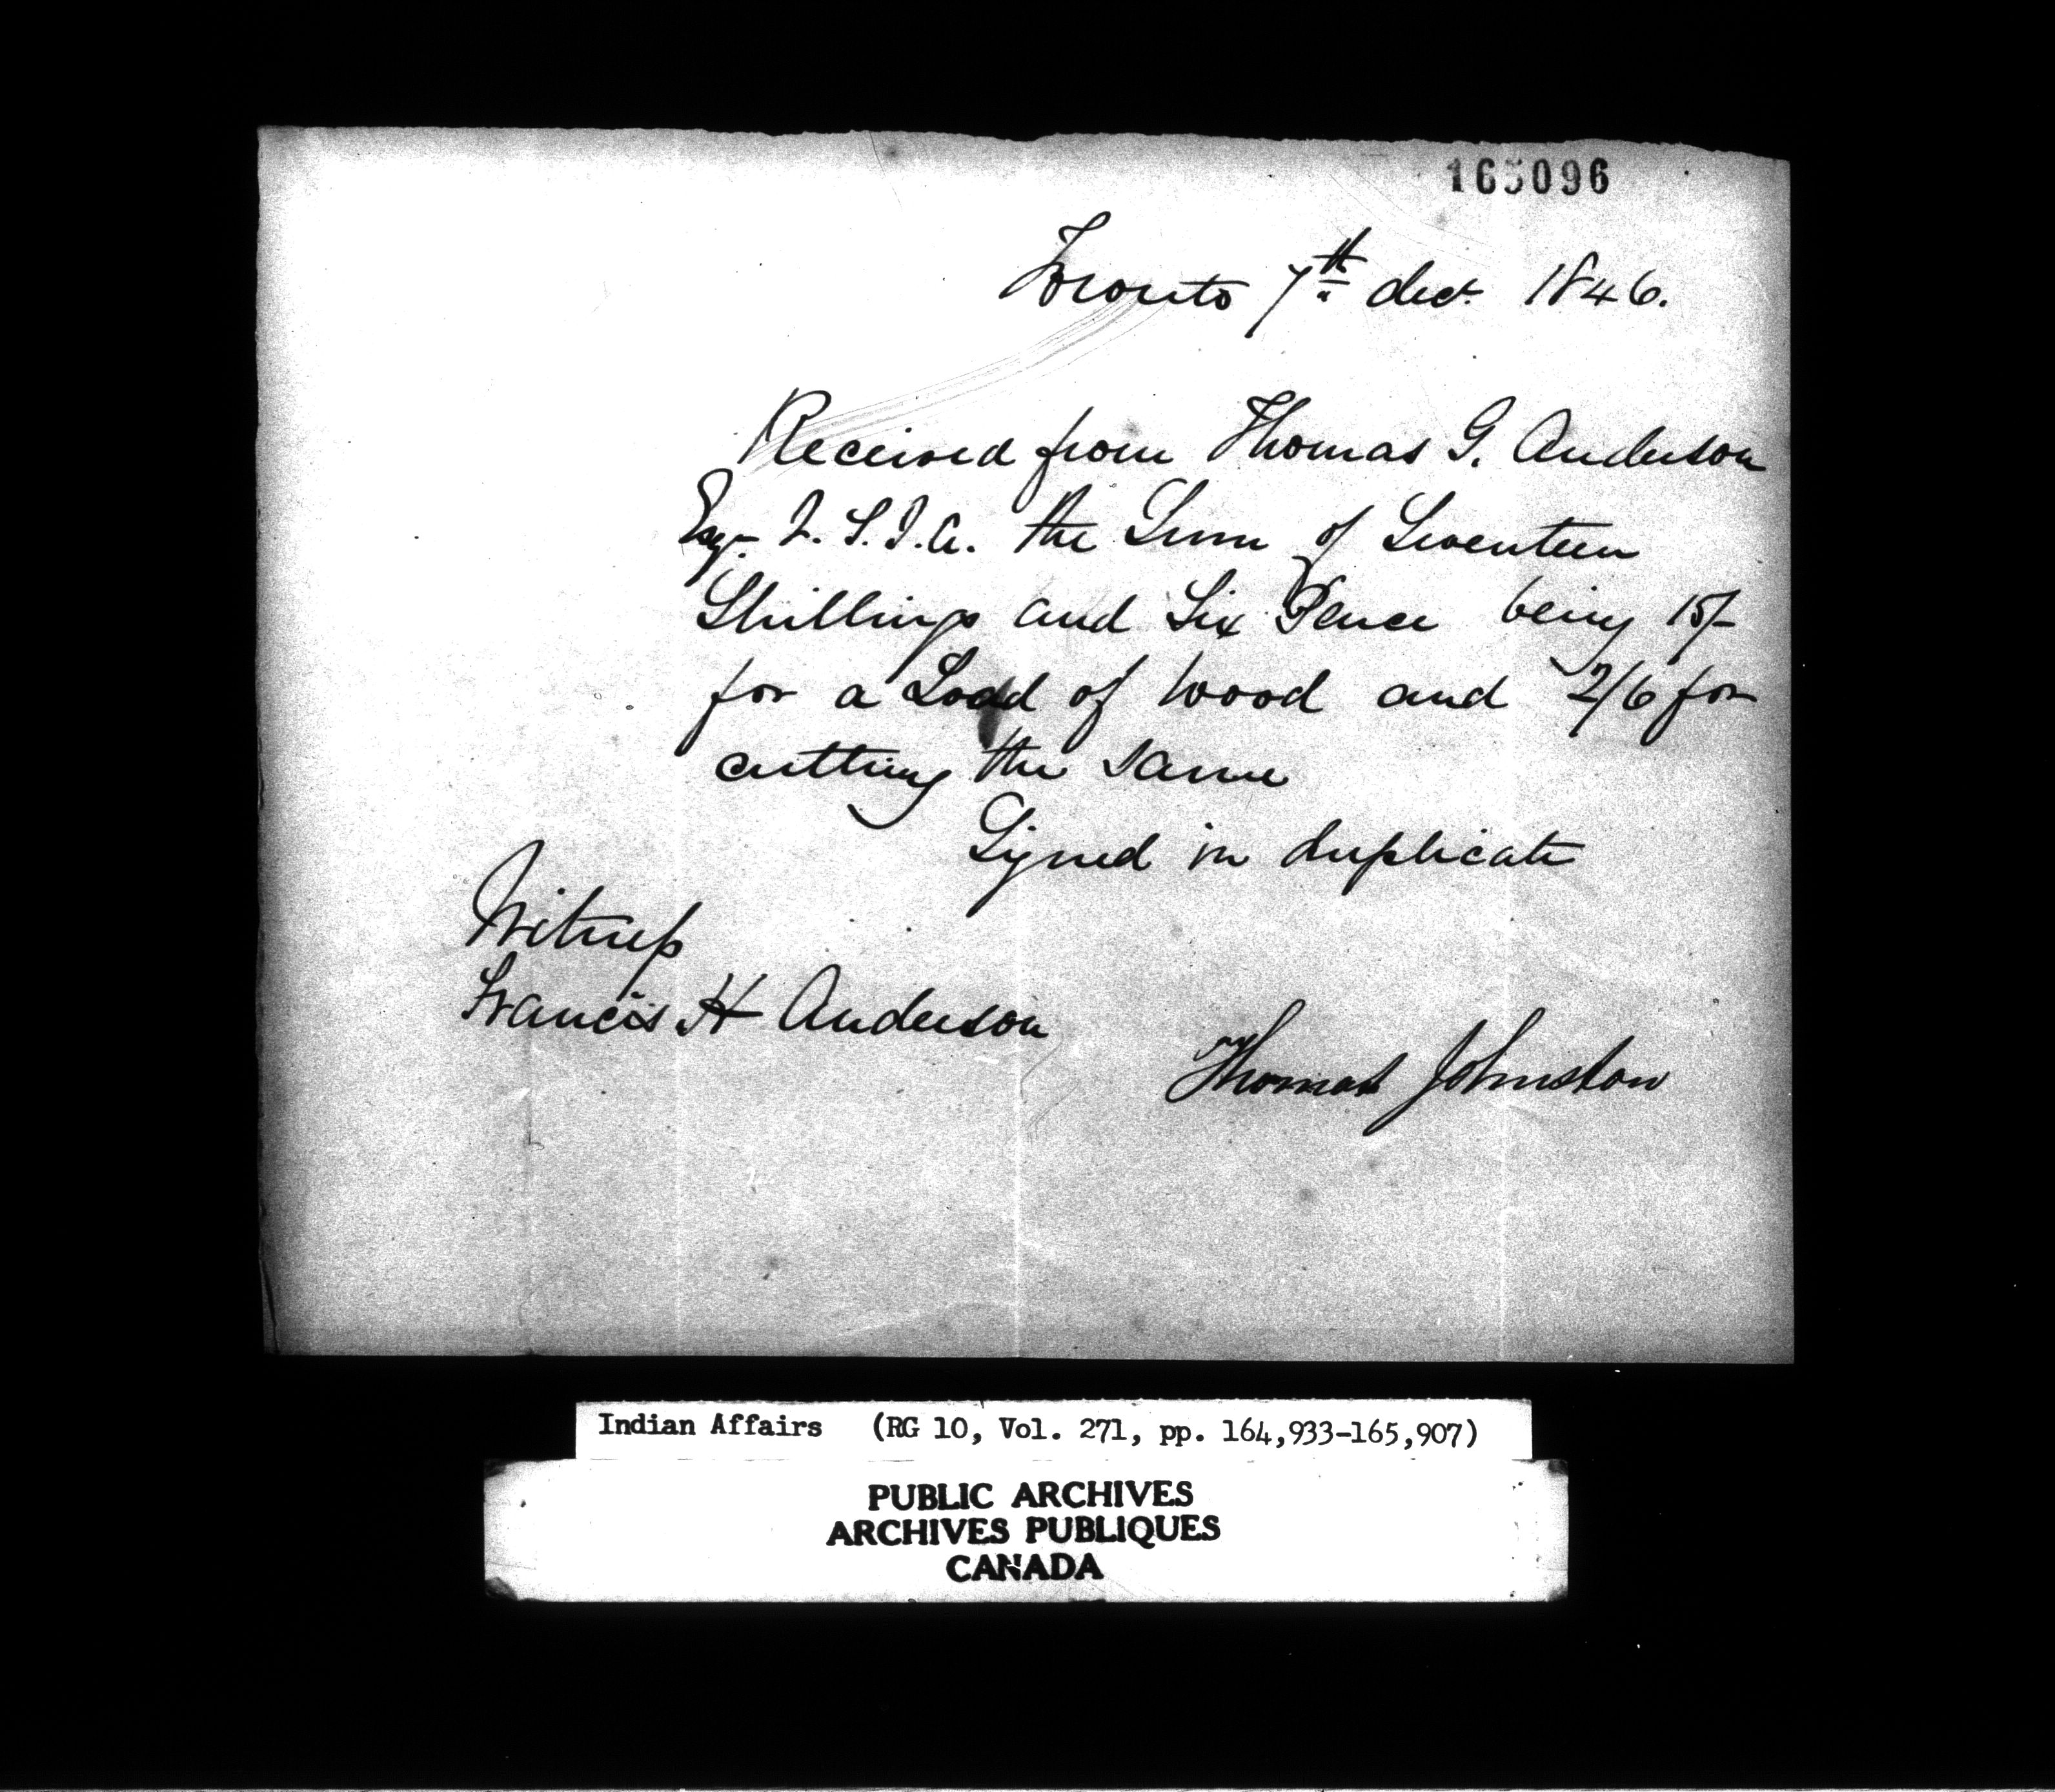 165096
Toronto 7th decr 1846.
Received from Thomas G. Anderson
Esqr. V. S. I. A. the Sum of Seventeen
Shillings and Six Pence being 15/-
for a Load of Wood and 2/6 for
cutting the same
Signed in duplicate
Witness
Francis H Anderson
Thomas Johnston
Indian Affairs (RG 10, Vol. 271, pp. 164,933-165,907)
PUBLIC ARCHIVES
ARCHIVES PUBLIQUES
CANADA